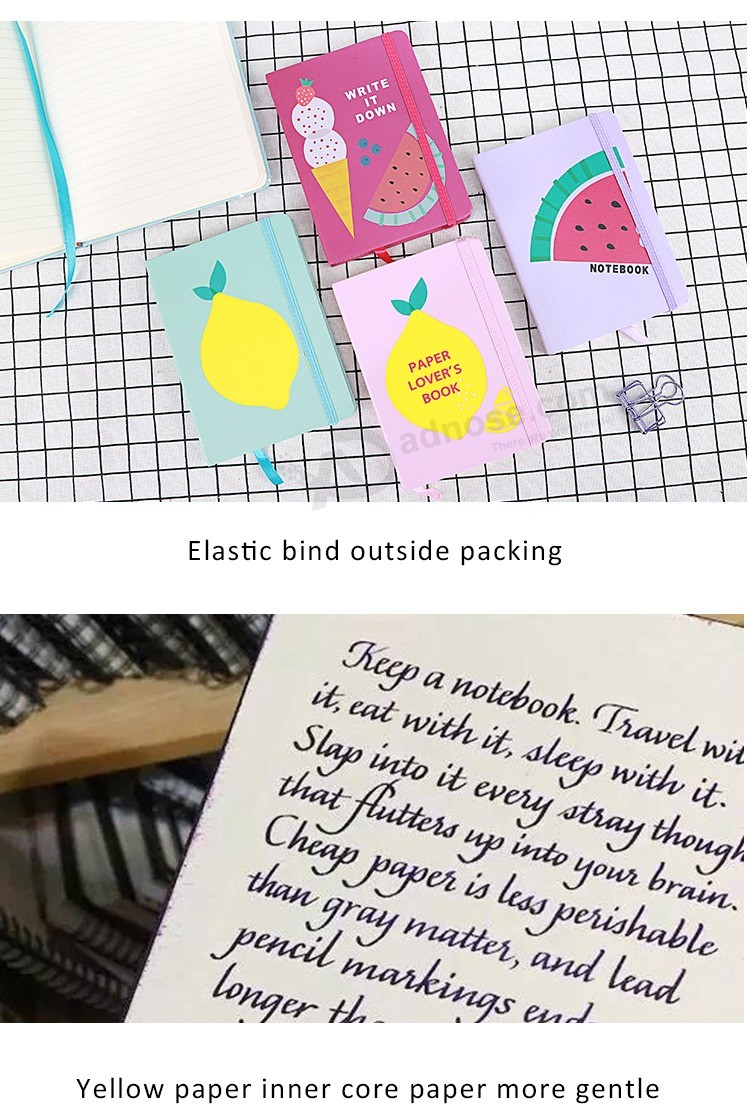 WRITE
IT
DOWN
NOTEBOOK
PAPER
LOVER'S
BOOK
adnose.com
Elastic bind outside packing
Keep a notebook. Travel wit
it, eat with it, sleep with it.
Slap into it every stray though
that flutters up into your brain.
Cheap paper is less perishable
than gray matter, and lead
pencil markings end
longer tha
Yellow paper inner core paper more gentle